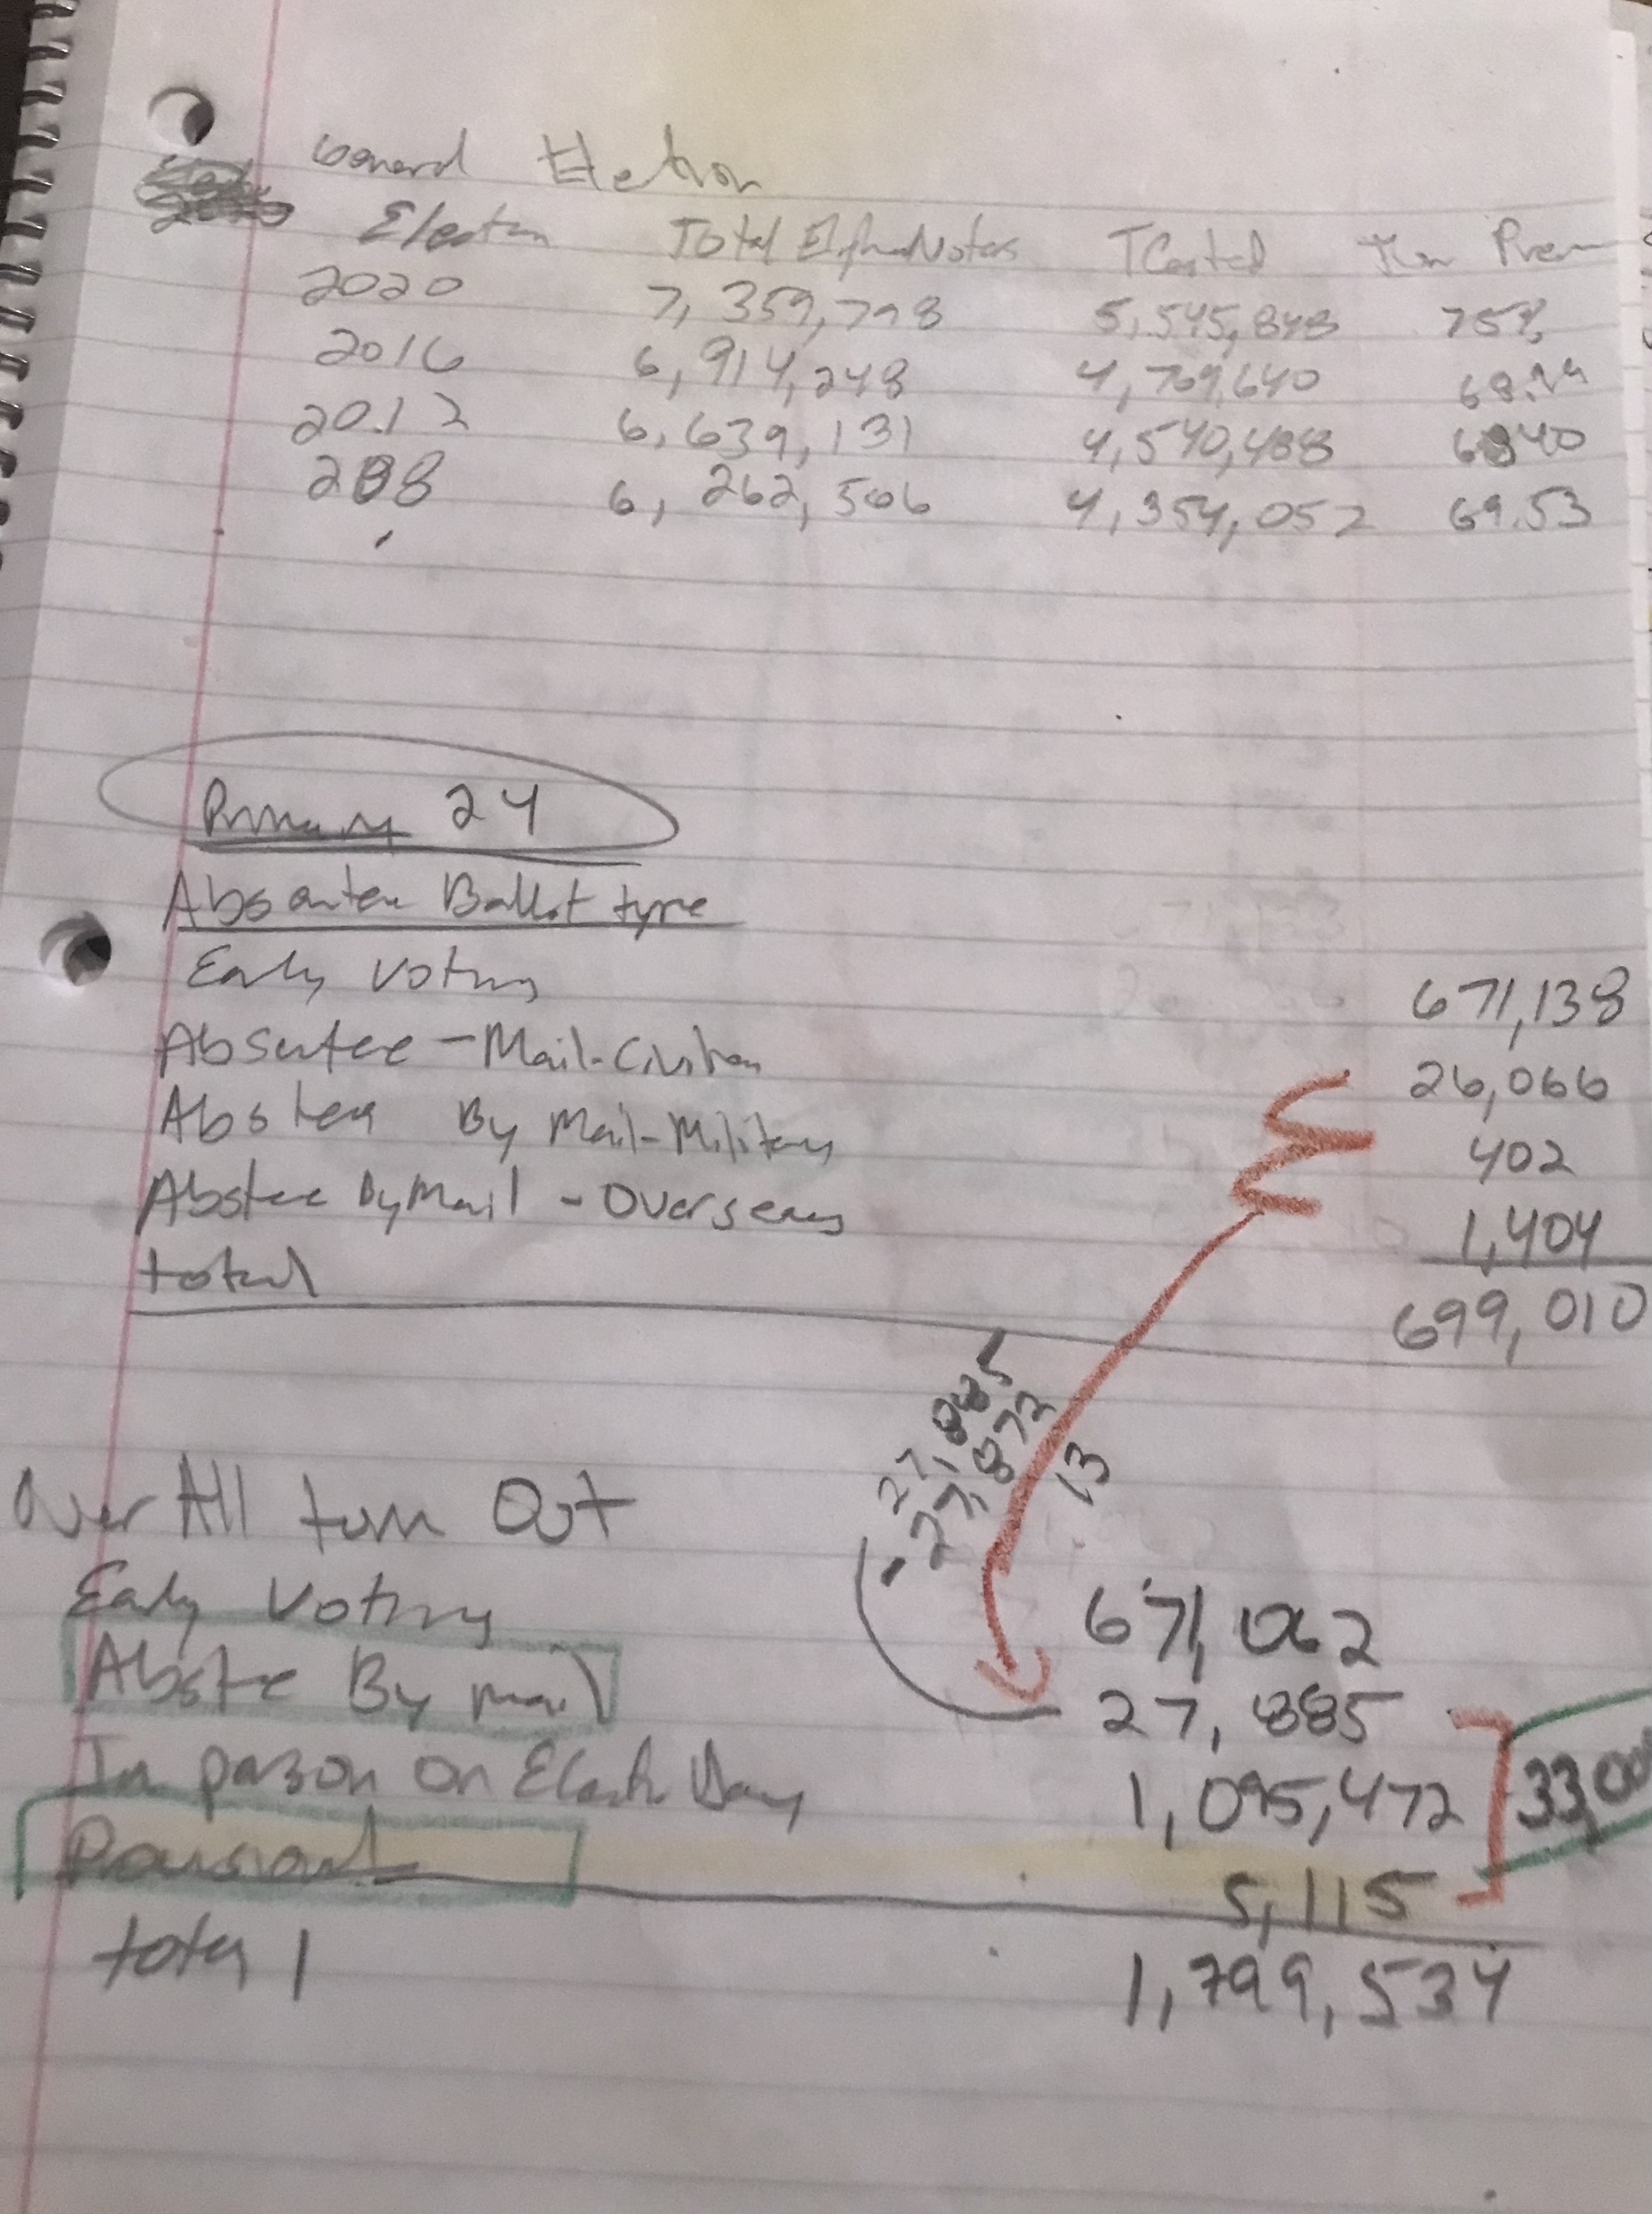 General Election
Election Total Eligible Voters T Casted
2020 7,359,798 5,545,848 75%
2016 6,914,248 4,769,640
2012 6,639,131 4,540,488
2008 6,262,566 4,354,052 69.53
Primary 24
Absentee Ballot type
Early Voting 671,138
Absentee - Mail-Civilian 26,066
Absten By Mail-Military 402
Abstee By Mail - Overseas 1,404
total 699,010
27,885
- 27,872
13
Over All turn Out
Early Voting 671,062
Abste By mail 27,885
In person on Election Day 1,095,472
5,115
total 1,799,534